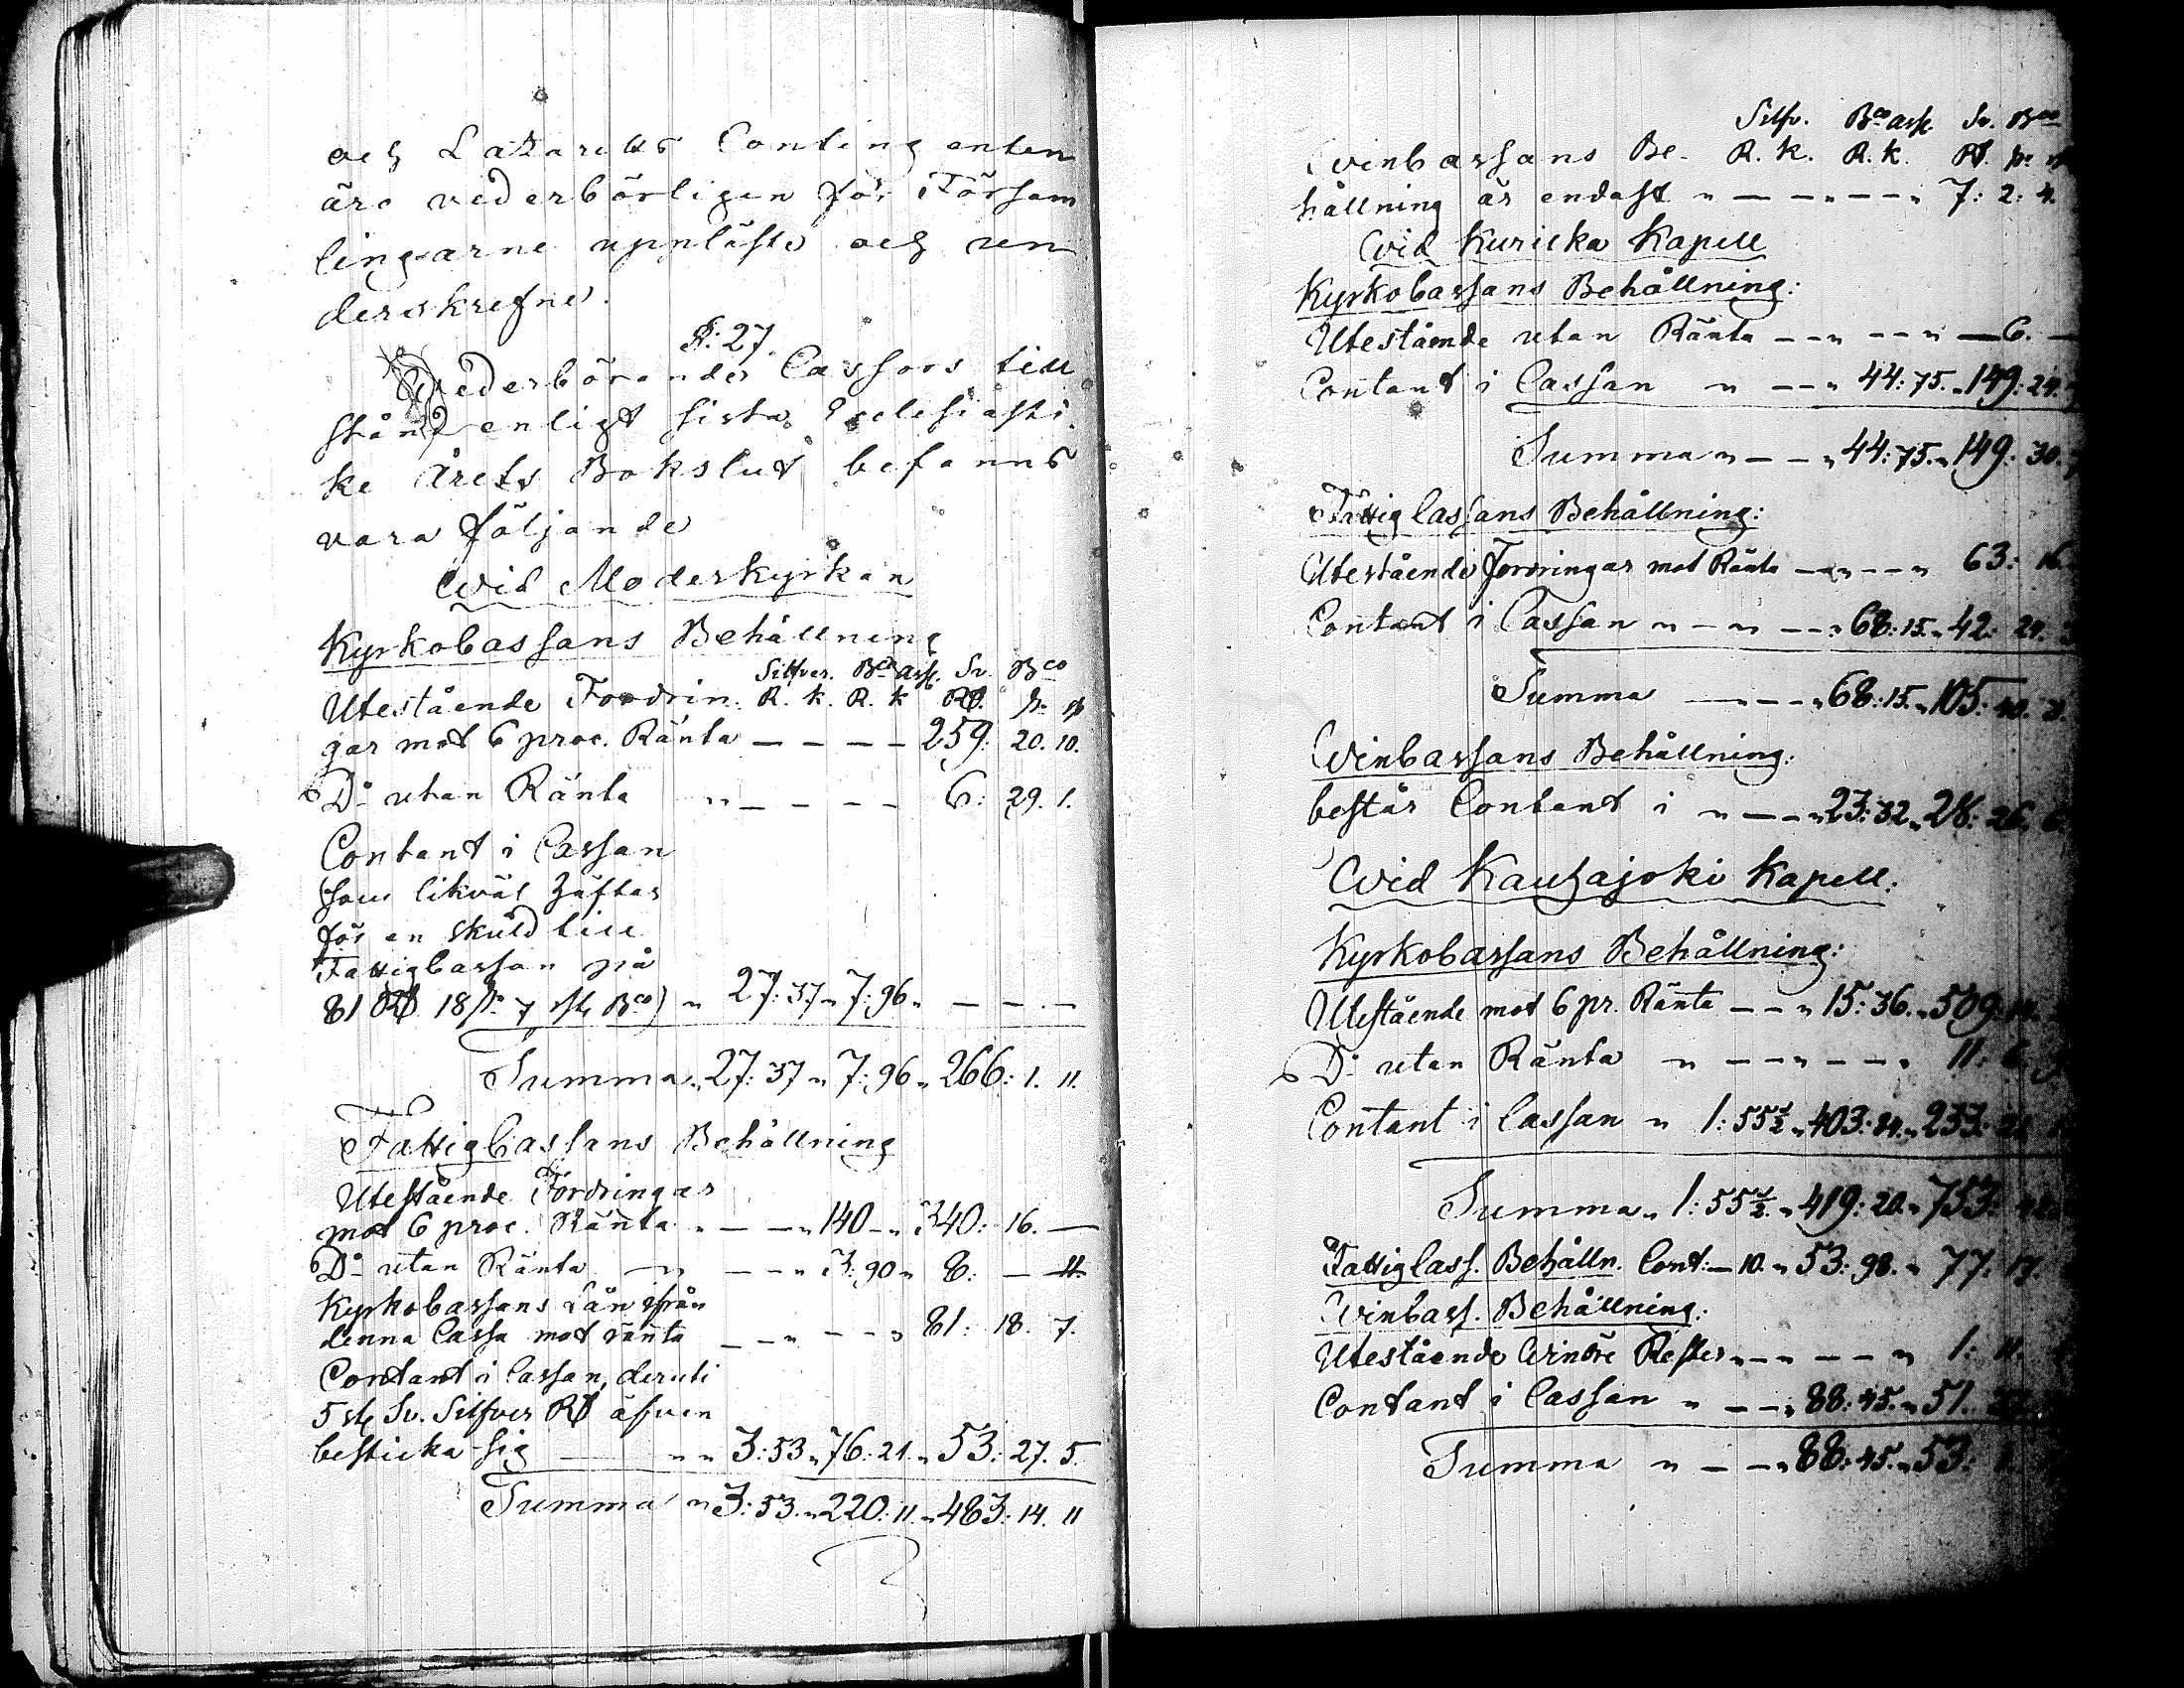 och Lazaretts Contingenten
äro vederbörligen för Försam
lingarne uppläste och un
derskrefne.
§. 27.
Vederbörandes Cassors till
stånd enligt sista Ecclesiasti
ke årets Bokslut befanns
vara följande
Wid Moderkyrkan
Kyrkocassans Behållning
Silfver. Bco ass. Sv. Bco
Utestående Fordrin. R. k. R. k Rd. s. rst
gar mot 6 proc. Ränta — — — — 259: 20. 10.
Do utan Ränta " — — — — 6: 29. 1.
Contant i Cassan
(som likväl häftar
för en skuld till
Fattigcassan på
81 Rd 18 s. 7 rst Bco) " 27: 37 " 7: 96 " — — —
Summa " 27: 37 " 7: 96 " 266: 1. 11.
FattigCassans Behållning
Utestående Fordringar
mot 6 proc. Ränta " — — " 140 — " 340: 16. —
Do utan Ränta — " — — " 3: 90 " 8: — —
Kyrkocassans Lån ifrån
denna Cassa mot ränta — — " — — " 81: 18. 7.
Contant i Cassan, deruti
5 st Sv. Silfver Rd äfven
besticka sig — " " 3: 53 " 76: 21. " 53: 27. 5
Summa " 3: 53. " 220: 11. " 483: 14. 11
Silfv. Bco ass. Sv. Bco
Vincassans Be- R. k. R. k. Rd. s. rst
hållning är endast " — — " — — " 7: 2: 4.
Wid Kuricka Kapell
Kyrkocassans Behållning:
Utestående utan Ränta — — " — — " — 6. —
Contant i Cassan " — — " 44: 75. " 149: 24.
Summa " — — " 44: 75. " 149: 30.
Fattig Cassans Behållning:
Utestående Fordringar mot Ränta — — " — — " 63: 16.
Contant i Cassan " — " — — " 68: 15. " 42: 24.
Summa — — — " 68: 15. " 105: 40.
Vincassans Behållning:
består Contant i " — — " 23: 32. " 28: 26. 6.
Wid Kauhajoki Kapell:
Kyrkocassans Behållning:
Utestående mot 6 pr. Ränta — — " 15: 36. " 509:
Do utan Ränta " — — " — — " 11: 6.
Contant i Cassan " 1: 55½ " 403: 84. " 233:
Summa " 1: 55½ " 419: 20. " 753:
Fattigcass. Behålln. Cont: — 10. " 53: 98. " 77: 17.
Vincass. Behållning:
Utestående Vinöre Rester " — " — — " 1: 11.
Contant i Cassan " — — " 88: 45. " 51.
Summa " — — " 88: 45. " 53: